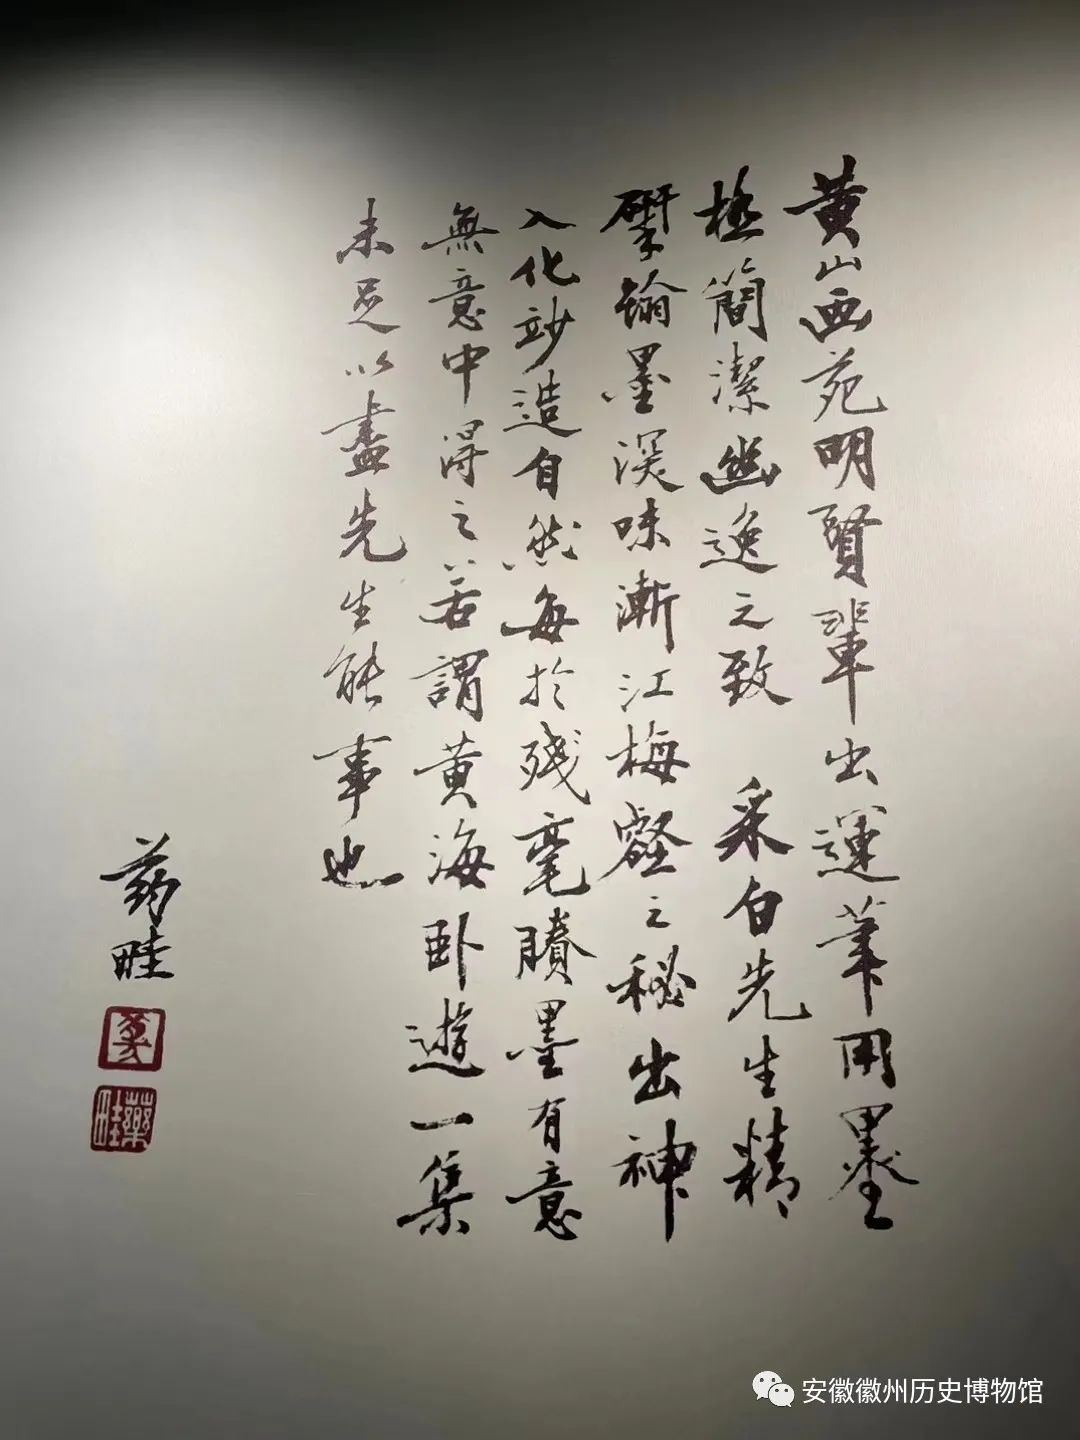 黄山画苑明賢輩出運筆用墨
極簡潔幽逸之致 采白先生精
擘翰墨深味漸江梅壑之秘出神
入化妙造自然每於残毫賸墨有意
無意中得之若謂黄海卧遊一集
未足以盡先生能事也
药畦
藥畦
安徽徽州历史博物馆